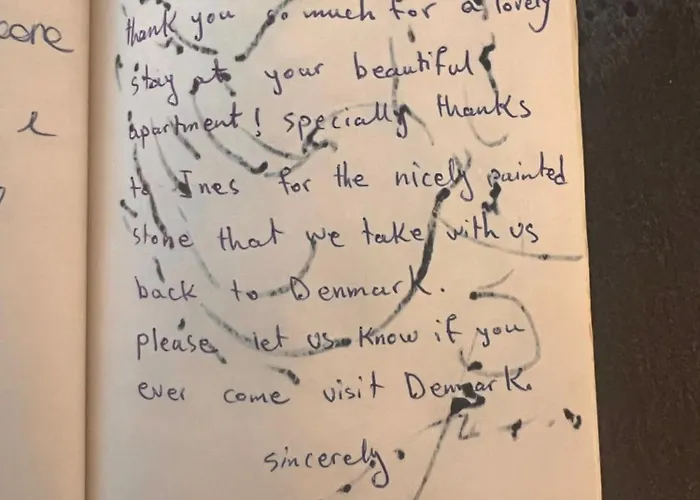 thank you so much for a lovely
stay at your beautiful
apartment! specially thanks
to Ines for the nicely painted
stone that we take with us
back to Denmark.
please let us know if you
ever come visit Denmark.
sincerely.